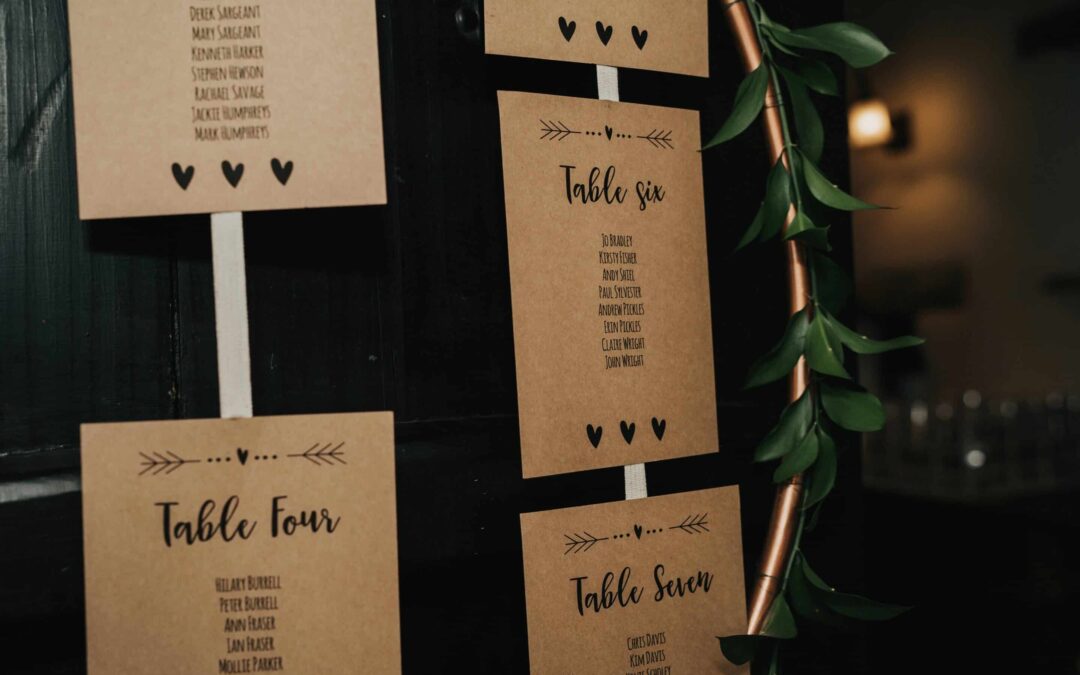 Derek Sargeant
Mary Sargeant
Kenneth Harker
Stephen Hewson
Rachael Savage
Jackie Humphreys
Mark Humphreys
Table Four
Hilary Burrell
Peter Burrell
Ann Fraser
Ian Fraser
Mollie Parker
Table six
Jo Bradley
Kirsty Fisher
Andy Shiel
Paul Sylvester
Andrew Pickles
Erin Pickles
Claire Wright
John Wright
Table Seven
Chris Davis
Kim Davis